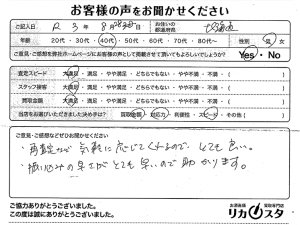 お客様の声をお聞かせください
ご記入日 R 3 年 8月28日 お住いの都道府県
年齢 20代・30代・40代・50代・60代・70代・80代 性別 男・女
ご意見・ご感想を弊社ホームページにお客様の声として掲載させて頂いてもよろしいでしょうか? Yes・No
査定スピード 大満足・満足・やや満足・どちらでもない・やや不満・不満・( )
スタッフ接客 大満足・満足・やや満足・どちらでもない・やや不満・不満・( )
買取金額 大満足・満足・やや満足・どちらでもない・やや不満・不満・( )
当店をお選びいただきました決め手は? 買取金額・対応力・利便性・スピード・その他( )
ご意見・ご感想などぜひお聞かせください
・再査定など気軽に応じてくれるので、とても良い。
・振り込みの早さがとても早いので助かります。
ご協力ありがとうございました。
この度は誠にありがとうございました。
お酒通販 買取専門店
リカスタ